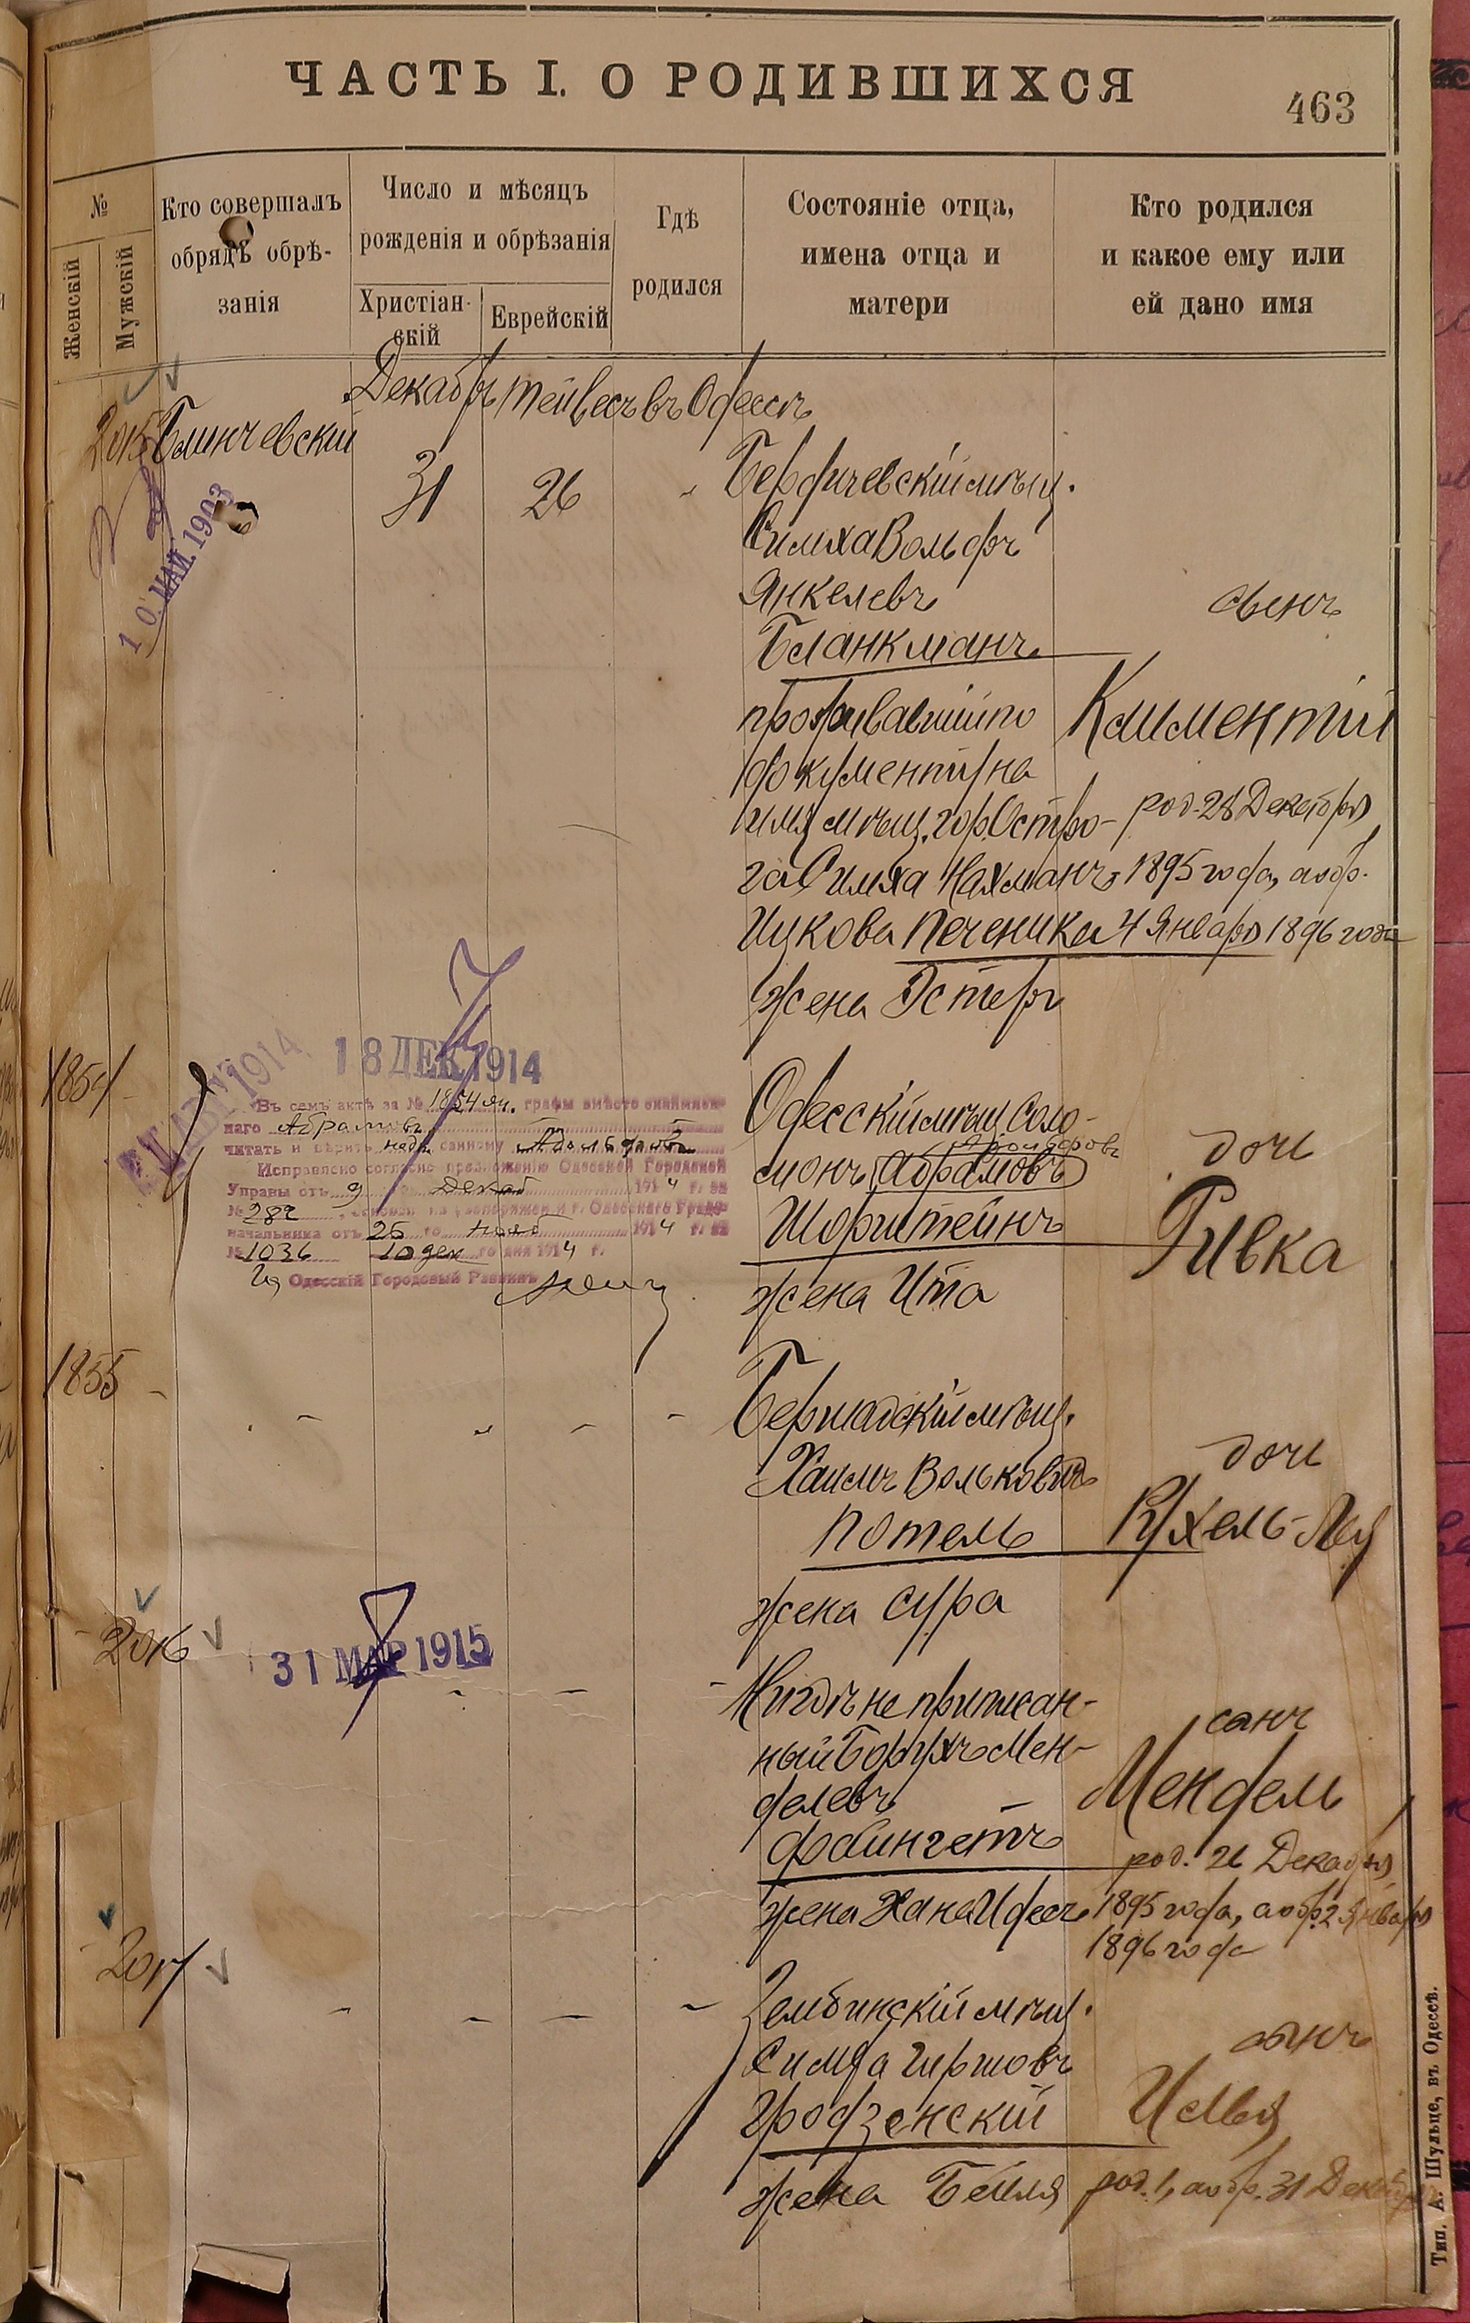 ЧАСТЬ I. О РОДИВШИХСЯ
463
№
Женскій
Мужскій
Кто совершалъ
обрядъ обрѣ-
занія
Число и мѣсяцъ
рожденія и обрѣзанія
Христіан-
скій
Еврейскій
Гдѣ
родился
Состояніе отца,
имена отца и
матери
Кто родился
и какое ему или
ей дано имя
Декабрь Тейвесъ въ Одессѣ
2015 Блинчевскій
31 26
10 МАЙ 1903
Бердичевскій мѣщ.
Симха Вольфъ
Янкелевъ
Бланкманъ
проживавшій по
документу на
имя мѣщ. гор. Остро-
га Симха Нахманъ
Ицкова Печеника
жена Эстеръ
сынъ
Климентій
род. 28 Декабря
1895 года, а обр.
4 Января 1896 года
1854
18 ДЕК 1914
Въ семъ актѣ за № 1854 жн. графы вмѣсто
наго Абрамовъ
читать и вѣрить
Исправлено согласно предложенію Одесской Городской
Управы отъ 9 го Декаб 1914 г. за
№ 282
начальника отъ 25 го нояб 1914 г. за
№ 1036 10 дек го дня 1914 г.
Ид Одесскій Городовый Раввинъ
Одесскій мѣщ. Соло-
монъ Абрамовъ
Шорштейнъ
жена Ита
дочь
Ривка
1855
Бершадскій мѣщ.
Хаимъ Вольковъ
Потель
жена Сура
дочь
Рухель-Лея
2016
31 МАР 1915
Нигдѣ не приписан-
ный Борухъ Мен-
делевъ
Файнгетъ
жена Хана Идесъ
сынъ
Мендель
род. 26 Декабря
1895 года, а обр. 2 Января
1896 года
2017
Зембинскій мѣщ.
Симха Гиршовъ
Гродзенскій
жена Бейля
сынъ
Илья
род. 1, а обр. 31 Декабря
Тип. А. Шульце, въ Одессѣ.